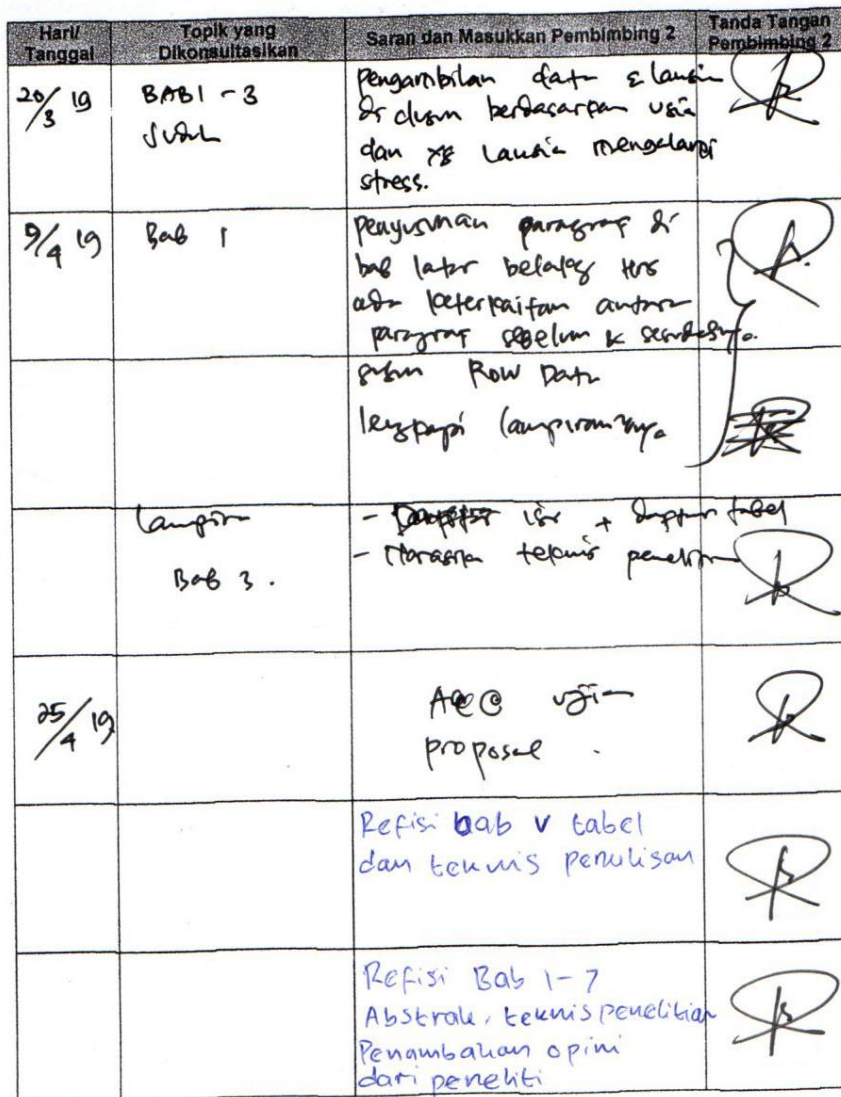 Hari/ Tanggal
Topik yang Dikonsultasikan
Saran dan Masukkan Pembimbing 2
Tanda Tangan Pembimbing 2
20/3 19
BAB 1 - 3
Judul
pengambilan data Σ lansia
di dusun berdasarkan usia
dan yg lansia mengalami
stress.
9/4 19
Bab 1
penyusunan paragraf di
bab latar belakg hrs
ada keterkaitan antara
paragraf sebelum & sesudahnya.
susun Row Data
lengkapi lampirannya
Lampiran
Bab 3.
- isi + daftar tabel
- teknis
25/4 19
ACC ujian
proposal.
Refisi bab V tabel
dan teknis penulisan
Refisi Bab 1-7
Abstrak, teknis penelitian
Penambahan opini
dari peneliti